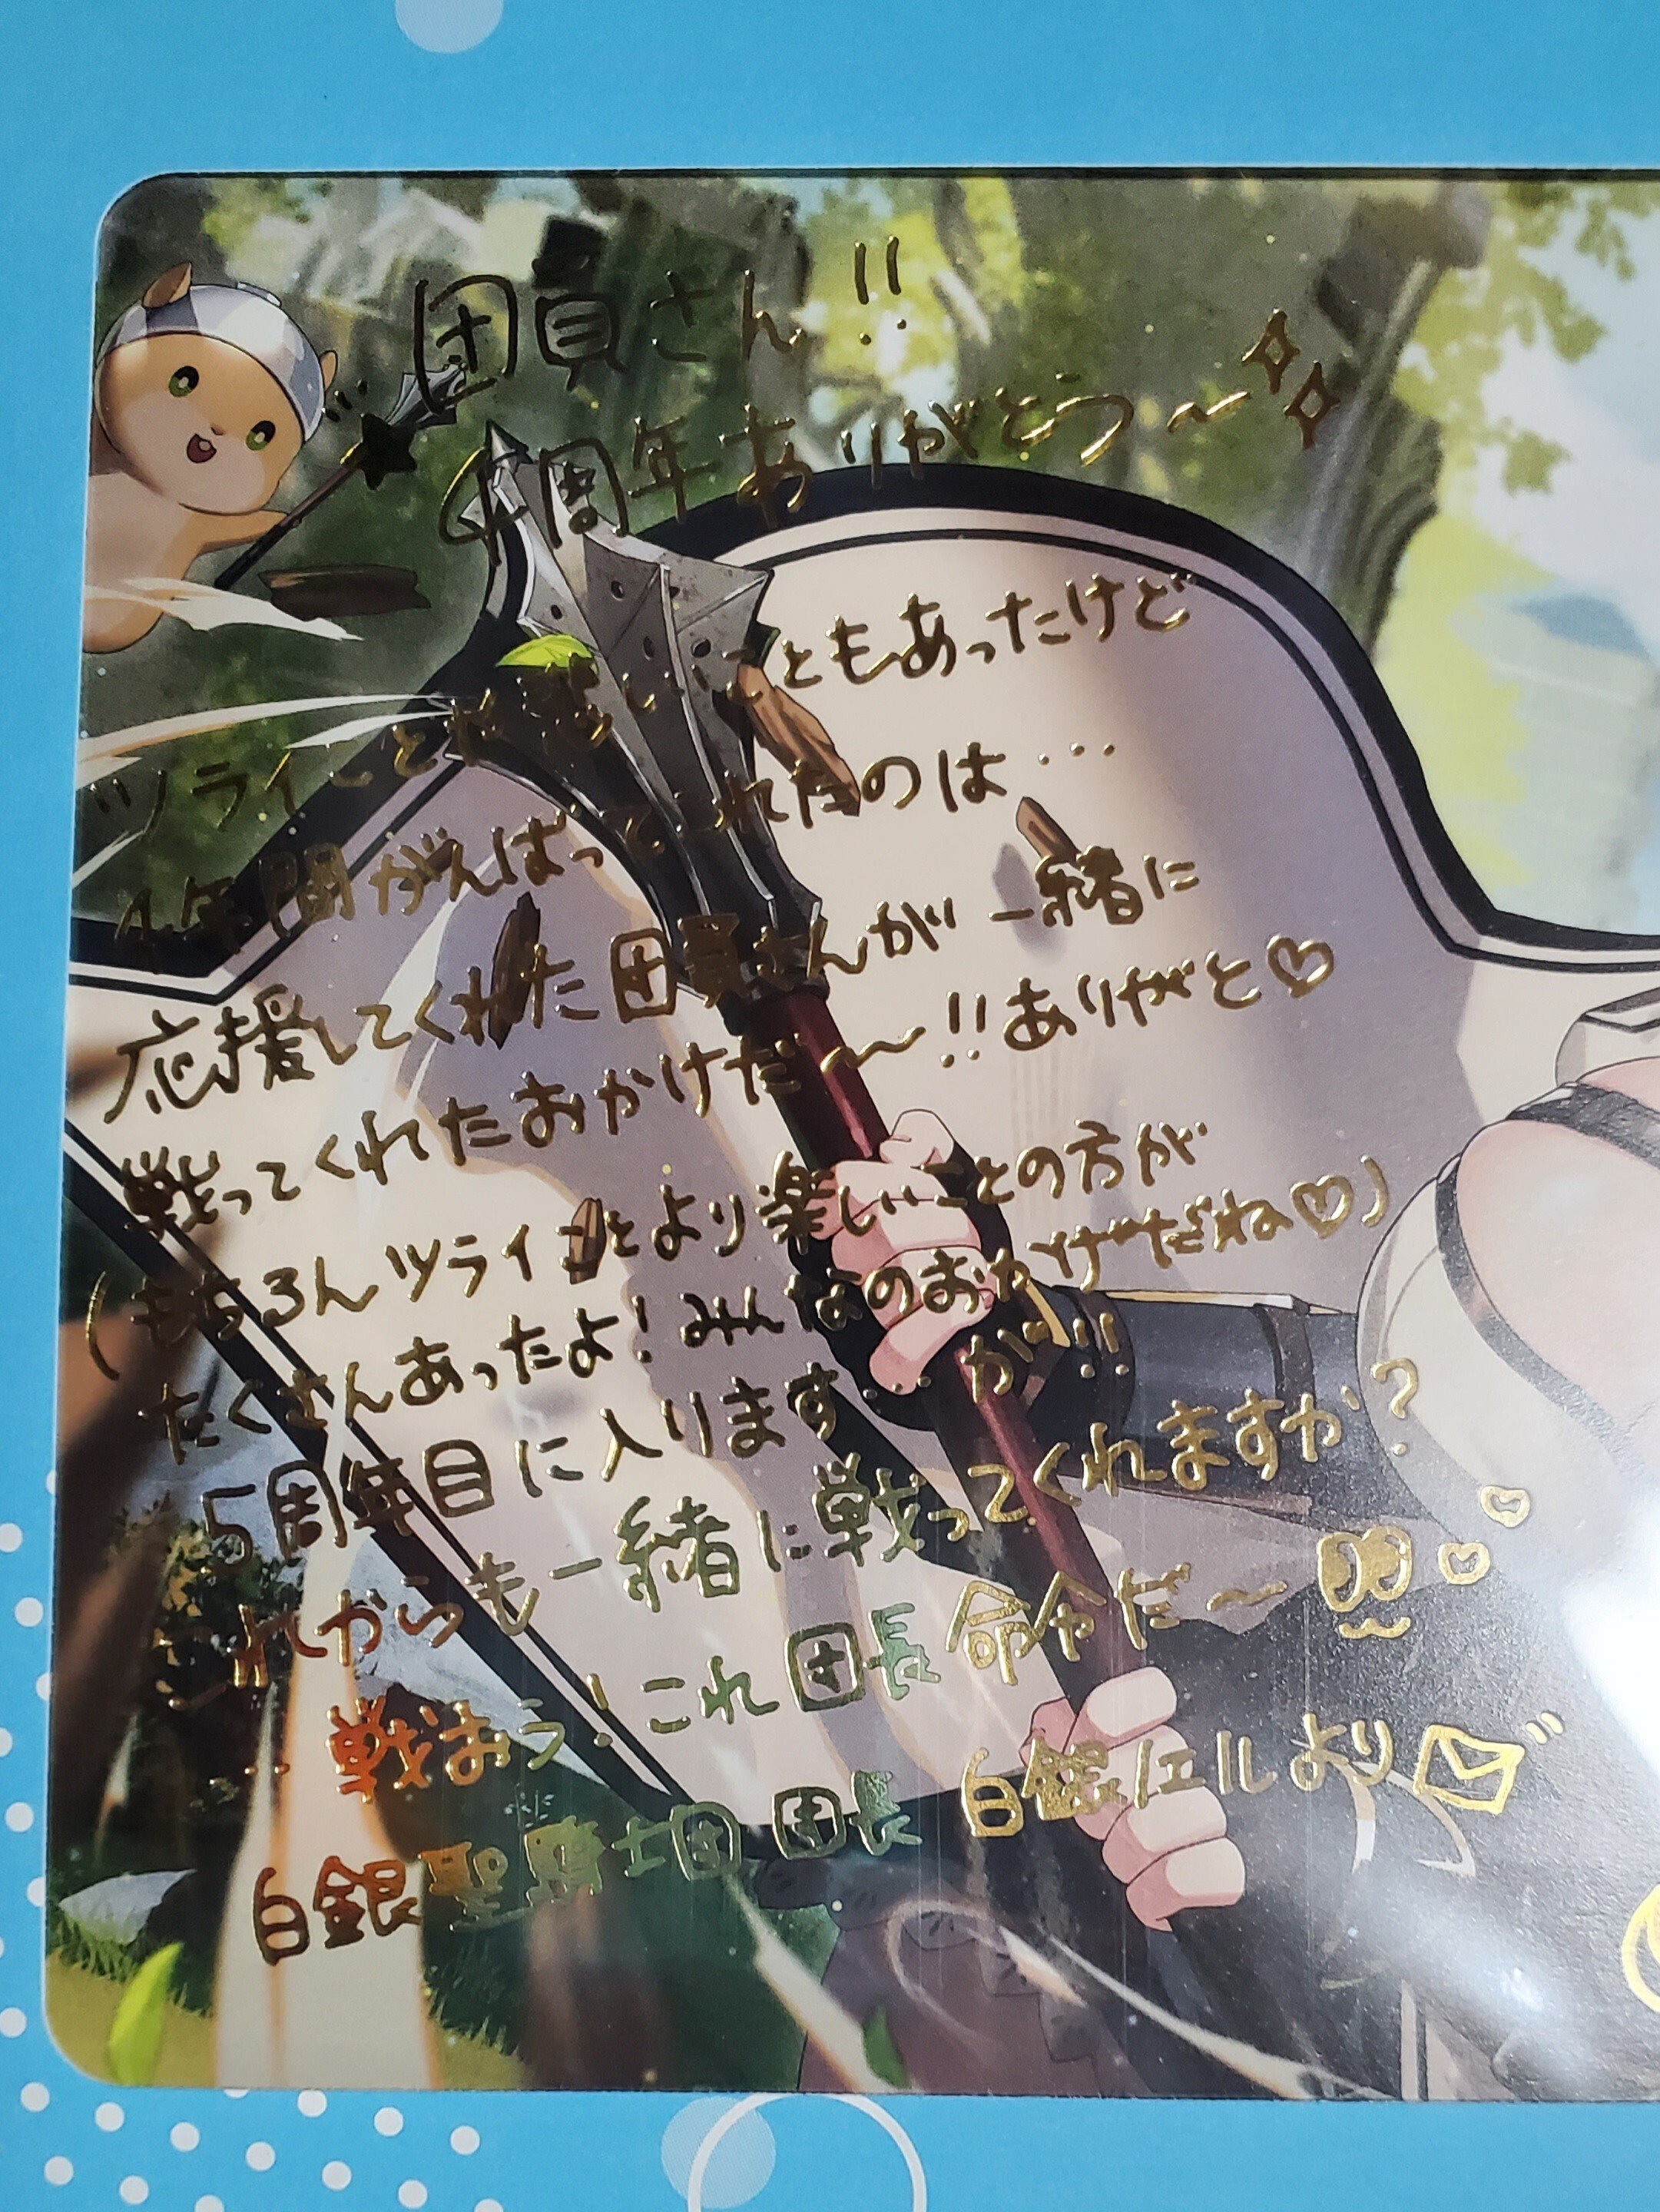 団員さん!!
4周年ありがとう〜
ツライことや悲しいこともあったけど
4年間がんばってこれたのは…
応援してくれた団員さんが一緒に
戦ってくれたおかげだ〜!!ありがと♡
(もちろんツライことより楽しいことの方が
たくさんあったよ!みんなのおかげだね♡)
5周年目に入ります…が!!
これからも一緒に戦ってくれますか?
…戦おう!これ団長命令だ〜
白銀聖騎士団 団長 白銀ノエルより